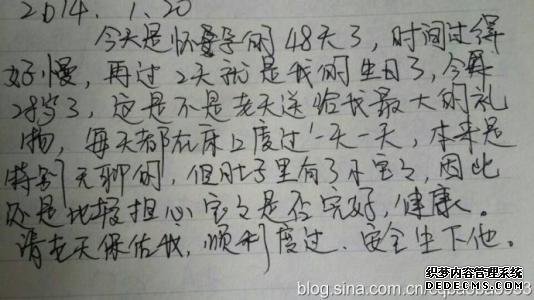 2014.1.20
今天是怀孕的48天了，时间过得
好慢，再过2天就是我的生日了，今年
28岁了，这是不是老天送给我最大的礼
物，每天都在床上度过一天一天，本来是
特别无聊的，但肚子里有了小宝宝，因此
还是比较担心宝宝是否完好，健康。
请老天保佑我，顺利度过、安全生下他。
织梦内容管理系统
blog.sina.com.cn
DEDECMS.COM